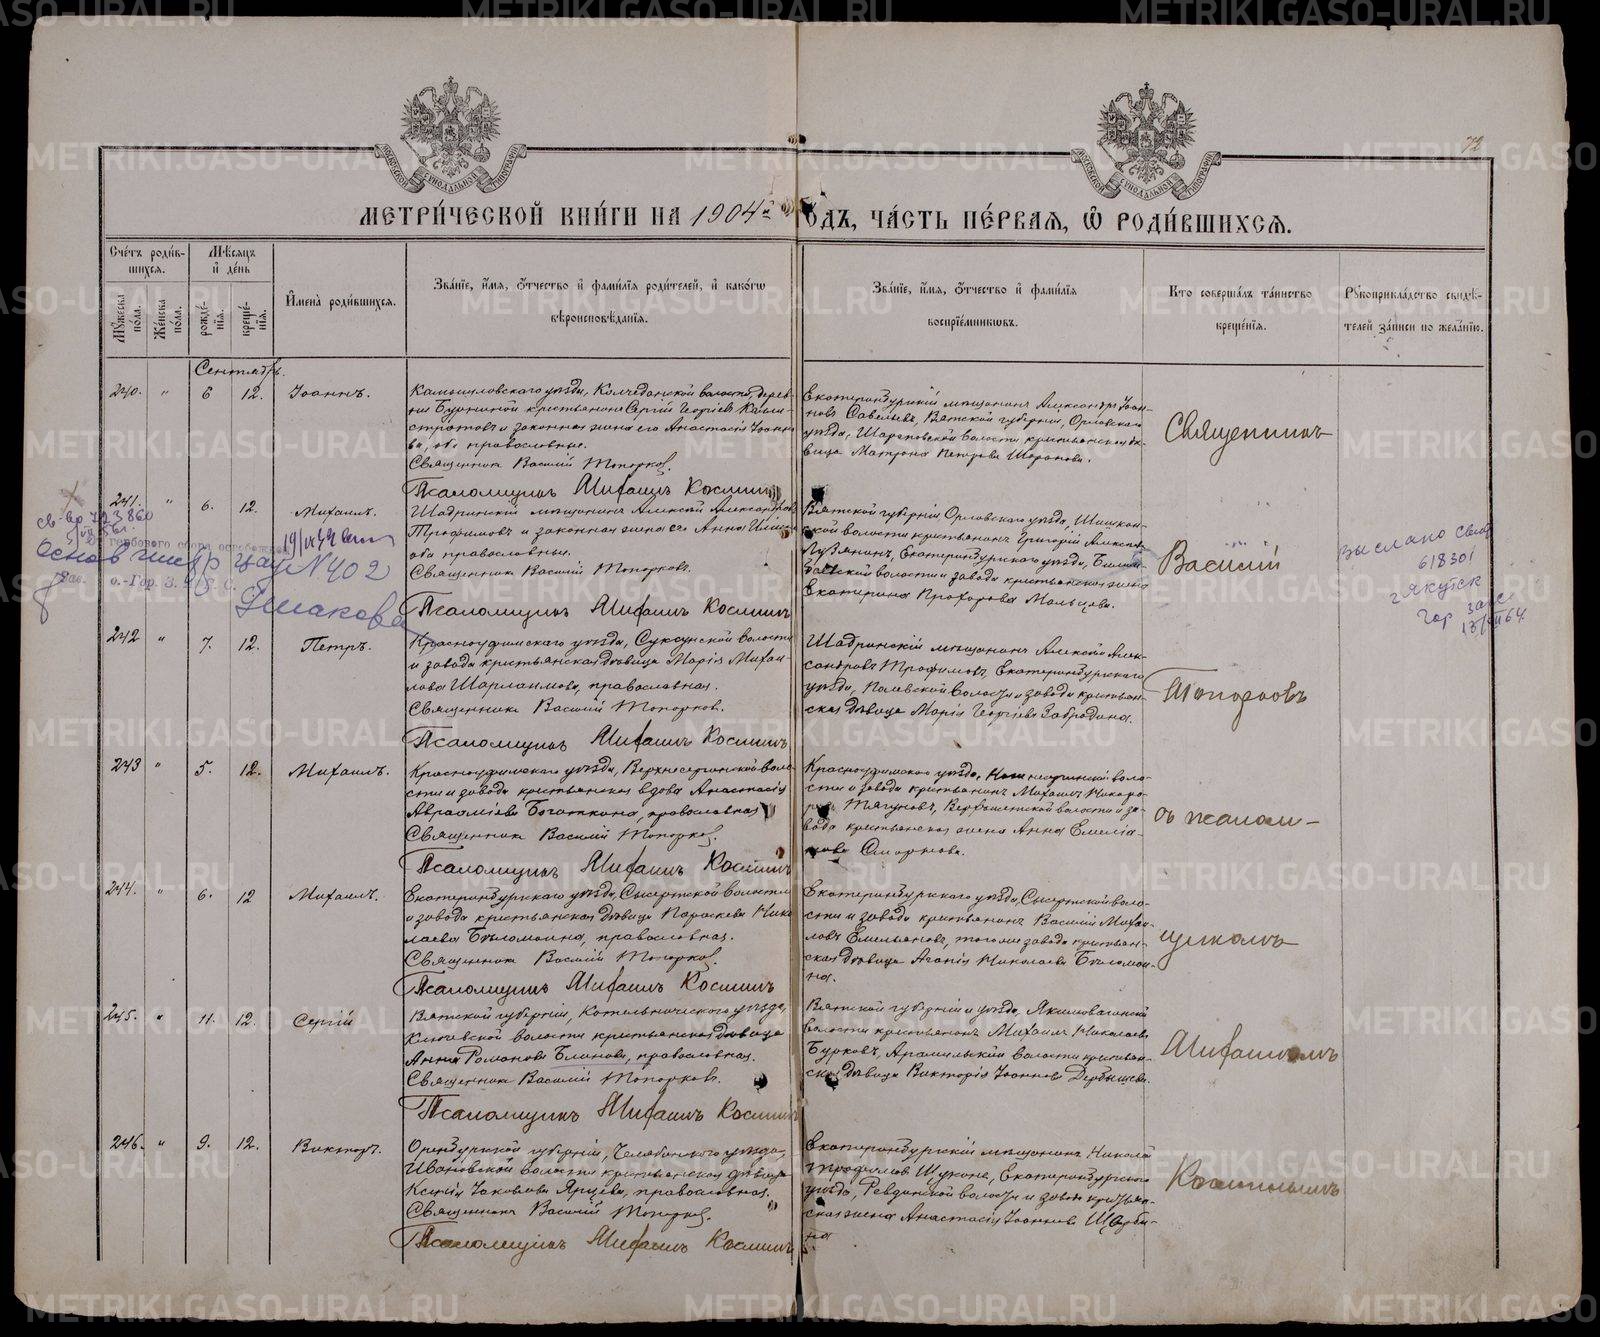 72
МОСКОВСКОЙ СѴНОДАЛЬНОЙ ТИПОГРАФІИ
МОСКОВСКОЙ СѴНОДАЛЬНОЙ ТИПОГРАФІИ
МЕТРИ́ЧЕСКОЙ КНИ́ГИ НА 1904 й ОДЪ, ЧА́СТЬ ПЕ́РВАЯ, Ѽ РОДИ́ВШИХСЯ.
Сче́тъ роди́в-
шихся.
Му́жеска по́ла.
Же́нска по́ла.
Мѣ́сяцъ
и де́нь
рожде́-
нія.
креще́-
нія.
И́мена̀ роди́вшихся.
Зва́ніе, и́мя, ѻ́тчество и фами́лія роди́телей, и како́гѡ
вѣроисповѣ́данія.
Зва́ніе, и́мя, ѻ́тчество и фами́лія
воспріе́мниковъ.
Кто̀ соверша́лъ та́инство
креще́нія.
Рꙋкоприкла́дство свидѣ́-
телей за́писи по жела́нію.
Сентябрь.
240. " 6 12. Іоаннъ.
Камышловскаго уѣзда, Колчеданской волости, дерев-
ни Бурниной крестьянинъ Сергій Георгіевъ
и законная жена его Анастасія Іоанно-
ва, оба православные.
Священникъ Василій Топорковъ.
Псаломщикъ Михаилъ Косминъ
Екатеринбургскій мѣщанинъ Александръ Іоан-
новъ Савельевъ, Вятской губерніи, Орловскаго
уѣзда, волости крестьянская дѣ-
вица Матрона Петрова
Священникъ
241. " 6. 12. Михаилъ.
Шадринскій мѣщанинъ Алексѣй Александровъ
Трофимовъ и законная жена его Анна
оба православные.
Священникъ Василій Топорковъ.
Псаломщикъ Михаилъ Косминъ
Вятской губерніи, Орловскаго уѣзда,
ской волости крестьянинъ Григорій Алексѣевъ
Лузянинъ, Екатеринбургскаго уѣзда, Билим-
баевской волости и завода крестьянская жена
Екатерина Прохорова Мальцева.
Василій
гербового сбора
№ 402
выслано свид
618301
г Якутск
гор загс
64
242 " 7. 12. Петръ.
Красноуфимскаго уѣзда, Суксунской волости
и завода крестьянская дѣвица Марія Михаи-
лова Шарламова, православная.
Священникъ Василій Топорковъ.
Псаломщикъ Михаилъ Косминъ
Шадринскій мѣщанинъ Алексѣй Алек-
сандровъ Трофимовъ, Екатеринбургскаго
уѣзда, Полевской волости и завода крестьян-
ская дѣвица Марія Георгіева Забродина.
Топорковъ
243 " 5. 12. Михаилъ.
Красноуфимскаго уѣзда, Верхнесергинской воло-
сти и завода крестьянская вдова Анастасія
Авраамієва Богаткина, православная
Священникъ Василій Топорковъ.
Псаломщикъ Михаилъ Косминъ
Красноуфимскаго уѣзда, Нижнесергинской воло-
сти и завода крестьянинъ Михаилъ Никано-
ровъ Тягуновъ, волости и за-
вода крестьянская жена Анна Емелья-
нова Смирнова.
съ псалом-
244. " 6. 12 Михаилъ.
Екатеринбургскаго уѣзда, Сысертской волости
и завода крестьянская дѣвица Параскева Нико-
лаева Бѣломоина, православная.
Священникъ Василій Топорковъ.
Псаломщикъ Михаилъ Косминъ
Екатеринбургскаго уѣзда, Сысертской воло-
сти и завода крестьянинъ Василій Михаи-
ловъ Емельяновъ, того же завода крестьян-
ская дѣвица Агапія Николаева Бѣломои-
на.
щикомъ
245. " 11. 12. Сергій
Вятской губерніи, Котельническаго уѣзда,
Ключевской волости крестьянская дѣвица
Анна Романова Блинова, православная.
Священникъ Василій Топорковъ.
Псаломщикъ Михаилъ Косминъ
Вятской губерніи и уѣзда, Якимовагинской
волости крестьянинъ Михаилъ Николаевъ
Бурковъ, Арамильской волости крестьян-
ская дѣвица Викторія Іоаннова Дербышева.
Михаиломъ
246. " 9. 12. Викторъ.
Оренбургской губерніи, Челябинскаго уѣзда,
Ивановской волости крестьянская дѣвица
Ксенія Іаковлева Ярцева, православная.
Священникъ Василій Топорковъ.
Псаломщикъ Михаилъ Косминъ
Екатеринбургскій мѣщанинъ Николай
Трофимовъ Щукинъ, Екатеринбургскаго
уѣзда, Ревдинской волости и завода крестьян-
ская жена Анастасія Іоаннова Щерби-
на
Косминымъ
METRIKI.GASO-URAL.RU